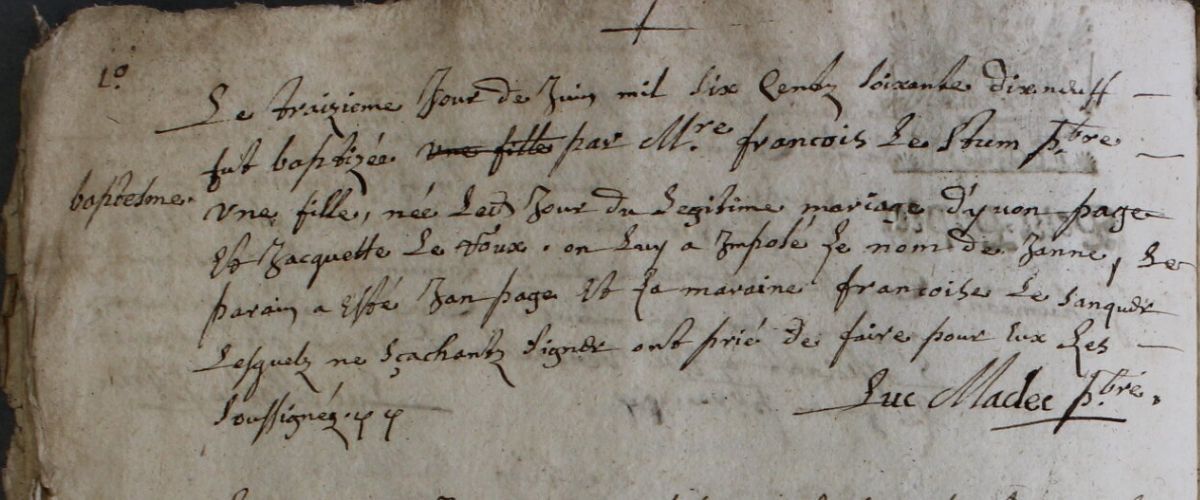 1.º
Le traizieme Jour de Juin mil six Centz soixante dixneuff
fut baptizée une fille par M.re francois Le Stum p.bre
baptesme.
une fille, née Led Jour du Legitime mariage d'yuon page
Et Jacquette Le doux. on Luy a Imposé Le nom de Janne, Le
parain a Esté Jan page Et La maraine francoise Le Sanquer
Lesquelz ne sçachantz signer ont prié de faire pour Eux Les
soussignéz.
Luc Madec p.bre.